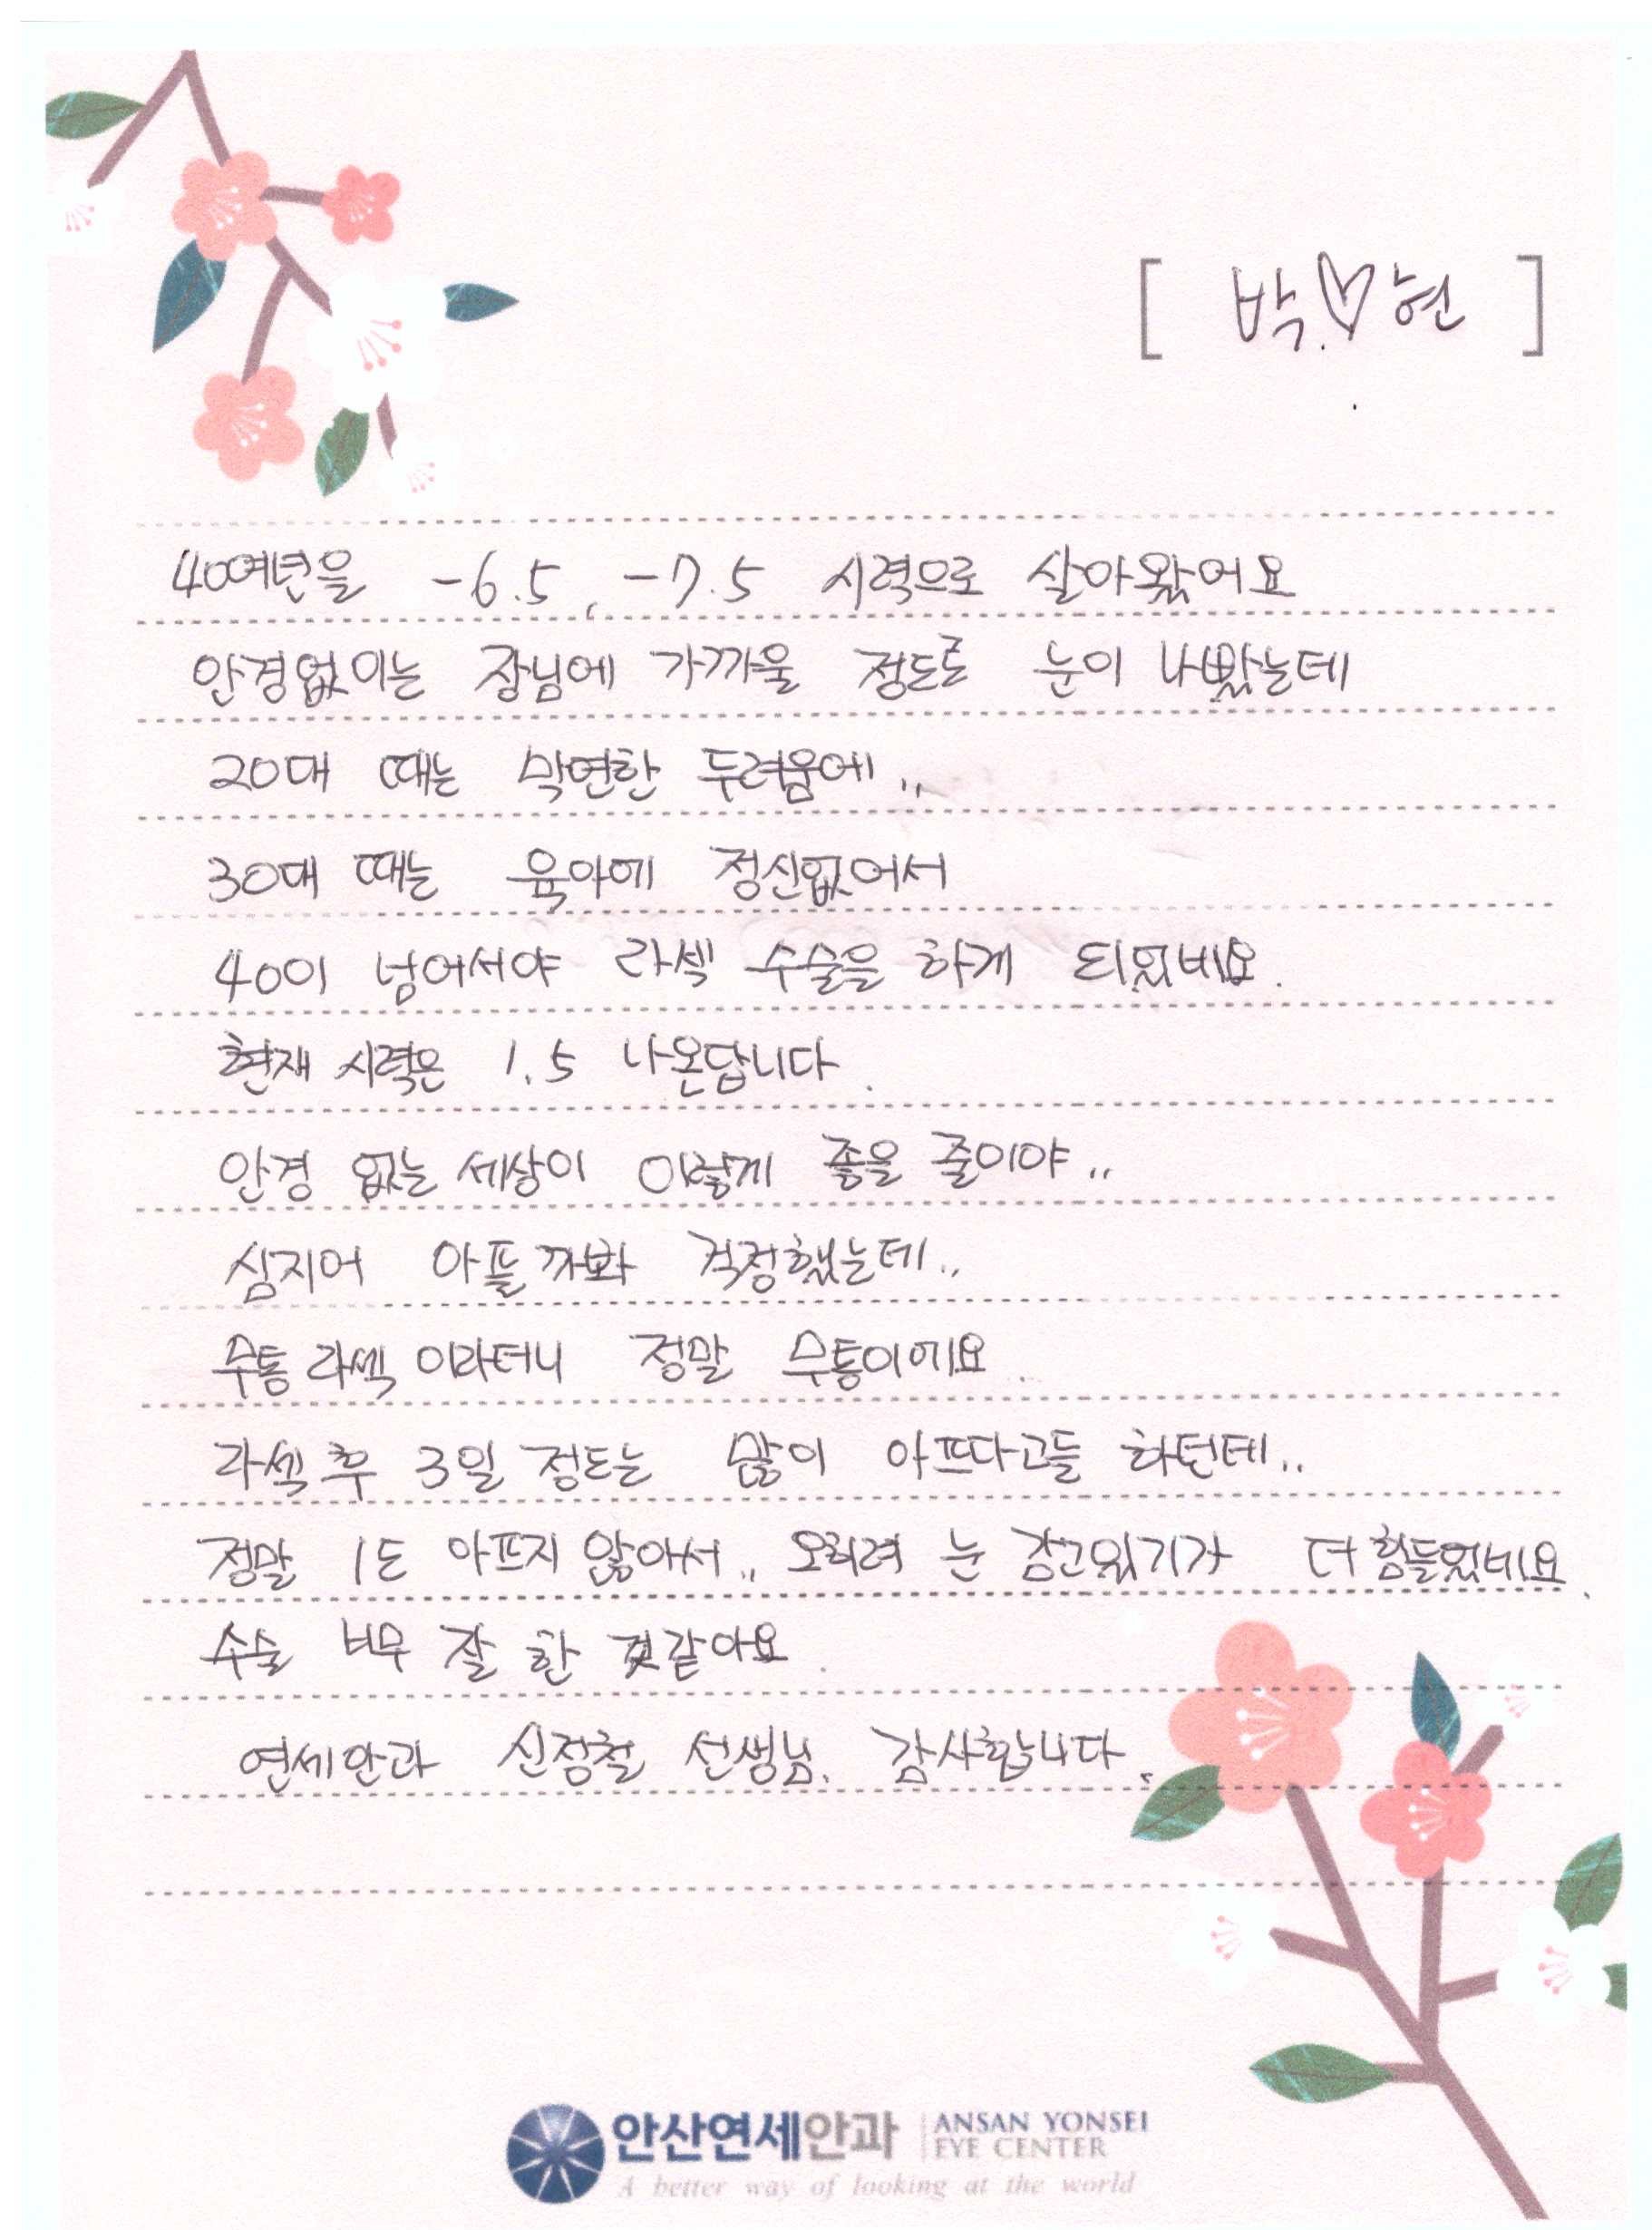 [ 박♡현 ]
40여년을 -6.5, -7.5 시력으로 살아왔어요
안경없이는 장님에 가까울 정도로 눈이 나빴는데
20대 때는 막연한 두려움에..
30대 때는 육아에 정신없어서
40이 넘어서야 라섹 수술을 하게 되었네요.
현재 시력은 1.5 나온답니다.
안경 없는 세상이 이렇게 좋을 줄이야..
심지어 아플까봐 걱정했는데..
무통라섹 이라더니 정말 무통이에요.
라섹 후 3일 정도는 많이 아프다고들 하던데..
정말 1도 아프지 않아서.. 오히려 눈 감고있기가 더 힘들었네요.
수술 너무 잘 한 것같아요.
연세안과 신정철 선생님. 감사합니다.
안산연세안과 ANSAN YONSEI
EYE CENTER
A better way of looking at the world